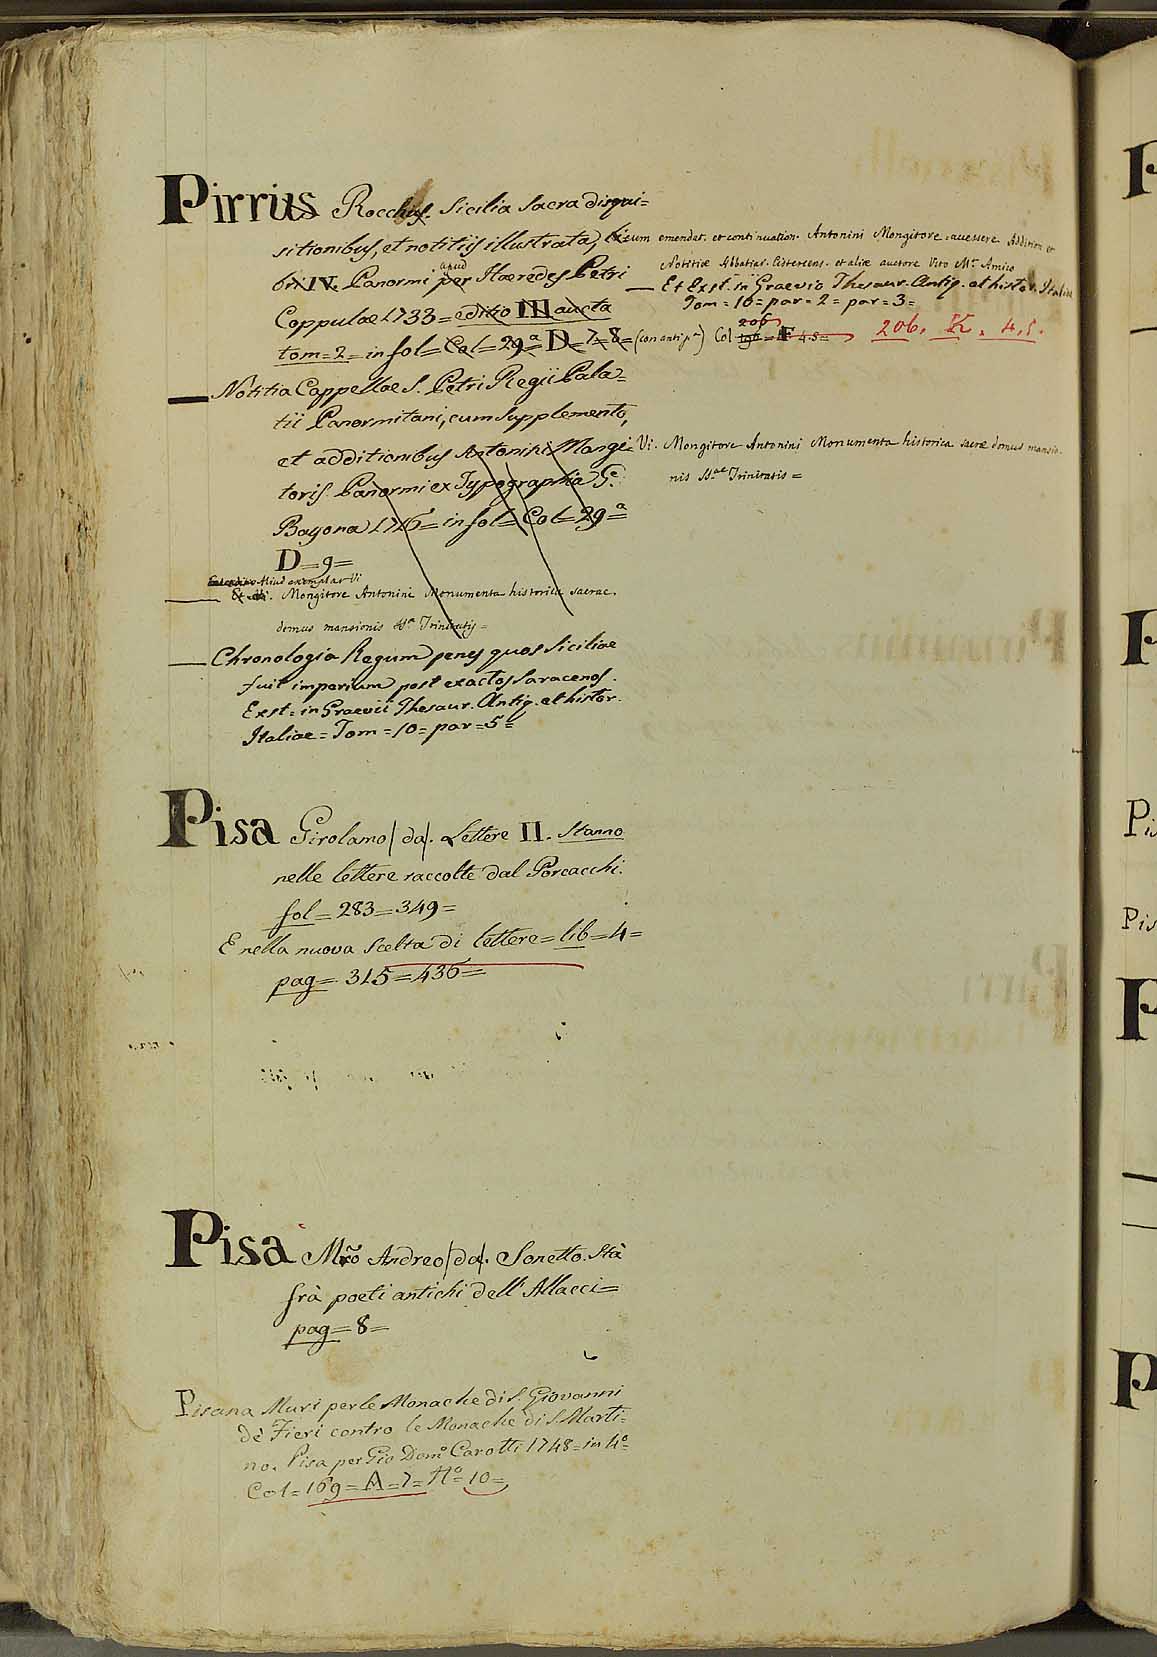 Pirrius Rocchus. Sicilia Sacra disqui=
sitionibus, et notitiis illustrata, cum emendat. et continuation. Antonini Mongitore. auessere Addition et
Notitiae Abbatiar. Cisterciens. et aliae auctore Vito Mᵃ Amico
bri IV. Panormi apud per Haeredes Petri
— Et Exst. in Graevio Thesaur. Antiq. et histor. Italiae
Tom = 10 = par = 2 = par = 3 =
Coppulae 1733 = editio III aucta
tom = 2 = in fol = Col = 29ᵃ = D = 7 = 8 = (con antip.ᵃ) Col 206 196 = F 4.5 = 206. K. 4.5.
— Notitia Cappellae S. Petri Regii Pala=
tii Panormitani, cum supplemento,
et additionibus Antonini Mongi
Vi. Mongitore Antonini Monumenta historica sacrae domus mansio-
nis SS.ae Trinitatis =
toris. Panormi ex Typographia G.
Bayona 1716 = in fol = Col = 29ᵃ =
D = 9 =
Aliud exemplar Vi
— Mongitore Antonini Monumenta historica sacrae.
domus mansionis SS.ᵃ Trinitatis =
— Chronologia Regum penes quos Siciliae
fuit imperium post exactos Saracenos.
Exst = in Graevii Thesaur. Antiq. et histor.
Italiae = Tom = 10 = par = 5 =
Pisa Girolamo (da). Lettere II. Stanno
nelle lettere raccolte dal Porcacchi.
fol = 283 = 349 =
E nella nuova Scelta di lettere = lib = 4 =
pag = 315 = 436 =
Pisa Mro Andreo (da). Sonetto. Stà
frà poeti antichi dell' Allacci =
pag = 8 =
Pisana Muri per le Monache di S. Giovanni
dè Fieri contro le Monache di S. Marti=
no. Pisa per Gio Dom.º Carotti 1748 = in 4º =
Col = 169 = A = 7 = Nº = 10 =